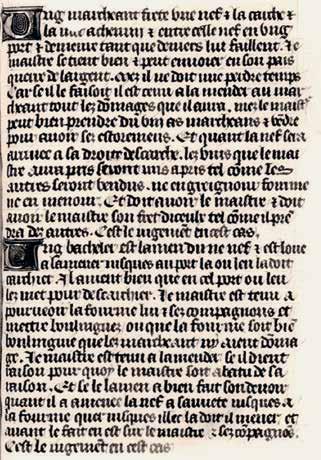 Ung marcheant frete une nef & la cache &
la met a chemin & entre celle nef en ung
port & demeure tant que deniers lui faillent. Le
maistre se tient bien & peut envoier en son pais
querir de largent. Mez il ne doit mie perdre temps
Car se il le faisoit il est tenu a lamender au mar
cheant tout lez domages que il aura. mez le maistre
peut bien prendre du vin as marcheans & vedre
pour avoir ses estoremens. Et quant la nef sera
arivee a sa droite descarche. lez vins que le mai
stre aura pris seront mis a pris tel come les
autres seront vendus. ne engreignour somme
ne en menour. Et doit avoir le maistre & doit
avoir le maistre son fret diceulx tel come il pren
dra des autres. Cest le jugement en cest cas.
Ung bacheler est lamen du ne nef & est loue
a lamener jusques au port la ou len la doit
carchier. Il lament bien que en cel port ou len
lez met pour descarchier. Le maistre est tenu a
pourveoir la fourme lui & ses compaignons et
mettre boulingues ou que la fourme soit bien
boulinguie que lez marcheant ny aient doma
ge. Le maistre est tenu a lamender se il dient
raison pour quoy le maistre soit abatu de sa
raison. Et se le lamen a bien fait son devoir
quant il a amence la nef a sauvete jusques a
la fourme quer jusques illec la doit il mener. et
avant le fait en est sur le maistre & sez compaignos.
Cest le jugement en cest cas